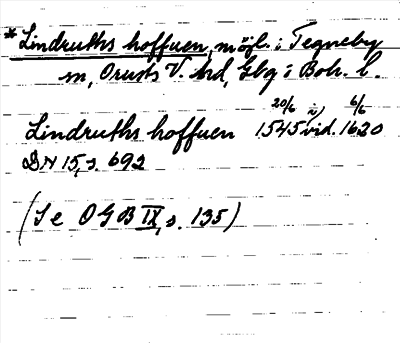 * Lindruths hoffuen, möjl. i Tegneby
sn, Orusts V. hd, Gbg o Boh. l.
20/6 i, 6/6
Lindruths hoffuen 1545 vid. 1620
DN 15, s. 692
(Se OGB IX, s. 135)